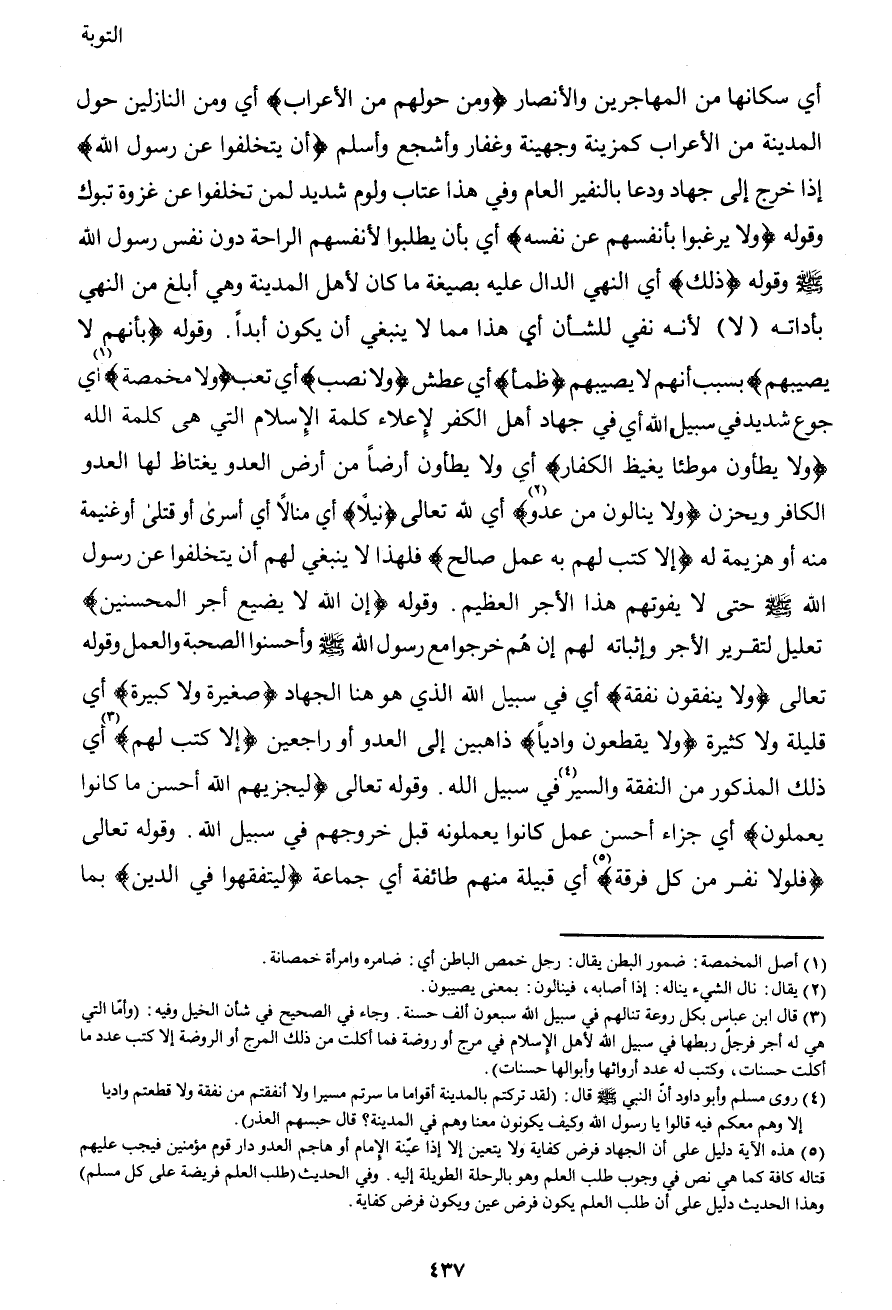 التوبة
أي سكانها من المهاجرين والأنصار ﴿ومن حولهم من الأعراب﴾ أي ومن النازلين حول
المدينة من الأعراب كمزينة وجهينة وغفار وأشجع وأسلم ﴿أن يتخلفوا عن رسول الله﴾
إذا خرج إلى جهاد ودعا بالنفير العام وفي هذا عتاب ولوم شديد لمن تخلفوا عن غزوة تبوك
وقوله ﴿ولا يرغبوا بأنفسهم عن نفسه﴾ أي بأن يطلبوا لأنفسهم الراحة دون نفس رسول الله
ﷺ وقوله ﴿ذلك﴾ أي النهي الدال عليه بصيغة ما كان لأهل المدينة وهي أبلغ من النهي
بأداته (لا) لأنه نفي للشأن أي هذا مما لا ينبغي أن يكون أبداً. وقوله ﴿بأنهم لا
يصيبهم﴾ بسبب أنهم لا يصيبهم ﴿ظمأ﴾ أي عطش ﴿ولا نصب﴾ أي تعب ﴿ولا مخمصة﴾(١) أي
جوع شديد في سبيل الله أي في جهاد أهل الكفر لإعلاء كلمة الإسلام التي هى كلمة الله
﴿ولا يطأون موطئا يغيظ الكفار﴾ أي ولا يطأون أرضاً من أرض العدو يغتاظ لها العدو
الكافر ويحزن ﴿ولا ينالون من عدو﴾(٢) أي لله تعالى ﴿نيلًا﴾ أي منالًا أي أسرىٰ أو قتلىٰ أوغنيمة
منه أو هزيمة له ﴿إلا كتب لهم به عمل صالح﴾ فلهذا لا ينبغي لهم أن يتخلفوا عن رسول
الله ﷺ حتى لا يفوتهم هذا الأجر العظيم. وقوله ﴿إن الله لا يضيع أجر المحسنين﴾
تعليل لتقرير الأجر وإثباته لهم إن هُم خرجوا مع رسول الله ﷺ وأحسنوا الصحبة والعمل وقوله
تعالى ﴿ولا ينفقون نفقة﴾ أي في سبيل الله الذي هو هنا الجهاد ﴿صغيرة ولا كبيرة﴾ أي
قليلة ولا كثيرة ﴿ولا يقطعون وادياً﴾ ذاهبين إلى العدو أو راجعين ﴿إلا كتب لهم﴾(٣) أي
ذلك المذكور من النفقة والسير(٤) في سبيل الله. وقوله تعالى ﴿ليجزيهم الله أحسن ما كانوا
يعملون﴾ أي جزاء أحسن عمل كانوا يعملونه قبل خروجهم في سبيل الله. وقوله تعالى
﴿فلولا نفر من كل فرقة﴾(٥) أي قبيلة منهم طائفة أي جماعة ﴿ليتفقهوا في الدين﴾ بما
(١) أصل المخمصة: ضمور البطن يقال: رجل خمص الباطن أي: ضامره وامرأة خمصانة.
(٢) يقال: نال الشيء يناله: إذا أصابه، فينالون: بمعنى يصيبون.
(٣) قال ابن عباس بكل روعة تنالهم في سبيل الله سبعون ألف حسنة. وجاء في الصحيح في شأن الخيل وفيه: (وأمّا التي
هي له أجر فرجلٌ ربطها في سبيل الله لأهل الإسلام في مرج أو روضة فما أكلت من ذلك المرج أو الروضة إلا كتب عدد ما
أكلت حسنات، وكتب له عدد أرواثها وأبوالها حسنات).
(٤) روى مسلم وأبو داود أنّ النبي ﷺ قال: (لقد تركتم بالمدينة أقواما ما سرتم مسيرا ولا أنفقتم من نفقة ولا قطعتم واديا
إلا وهم معكم فيه قالوا يا رسول الله وكيف يكونون معنا وهم في المدينة؟ قال حبسهم العذر).
(٥) هذه الآية دليل على أن الجهاد فرض كفاية ولا يتعين إلا إذا عيّنة الإمام أو هاجم العدو دار قوم مؤمنين فيجب عليهم
قتاله كافة كما هي نص في وجوب طلب العلم وهو بالرحلة الطويلة إليه. وفي الحديث (طلب العلم فريضة على كل مسلم)
وهذا الحديث دليل على أن طلب العلم يكون فرض عين ويكون فرض كفاية.
٤٣٧